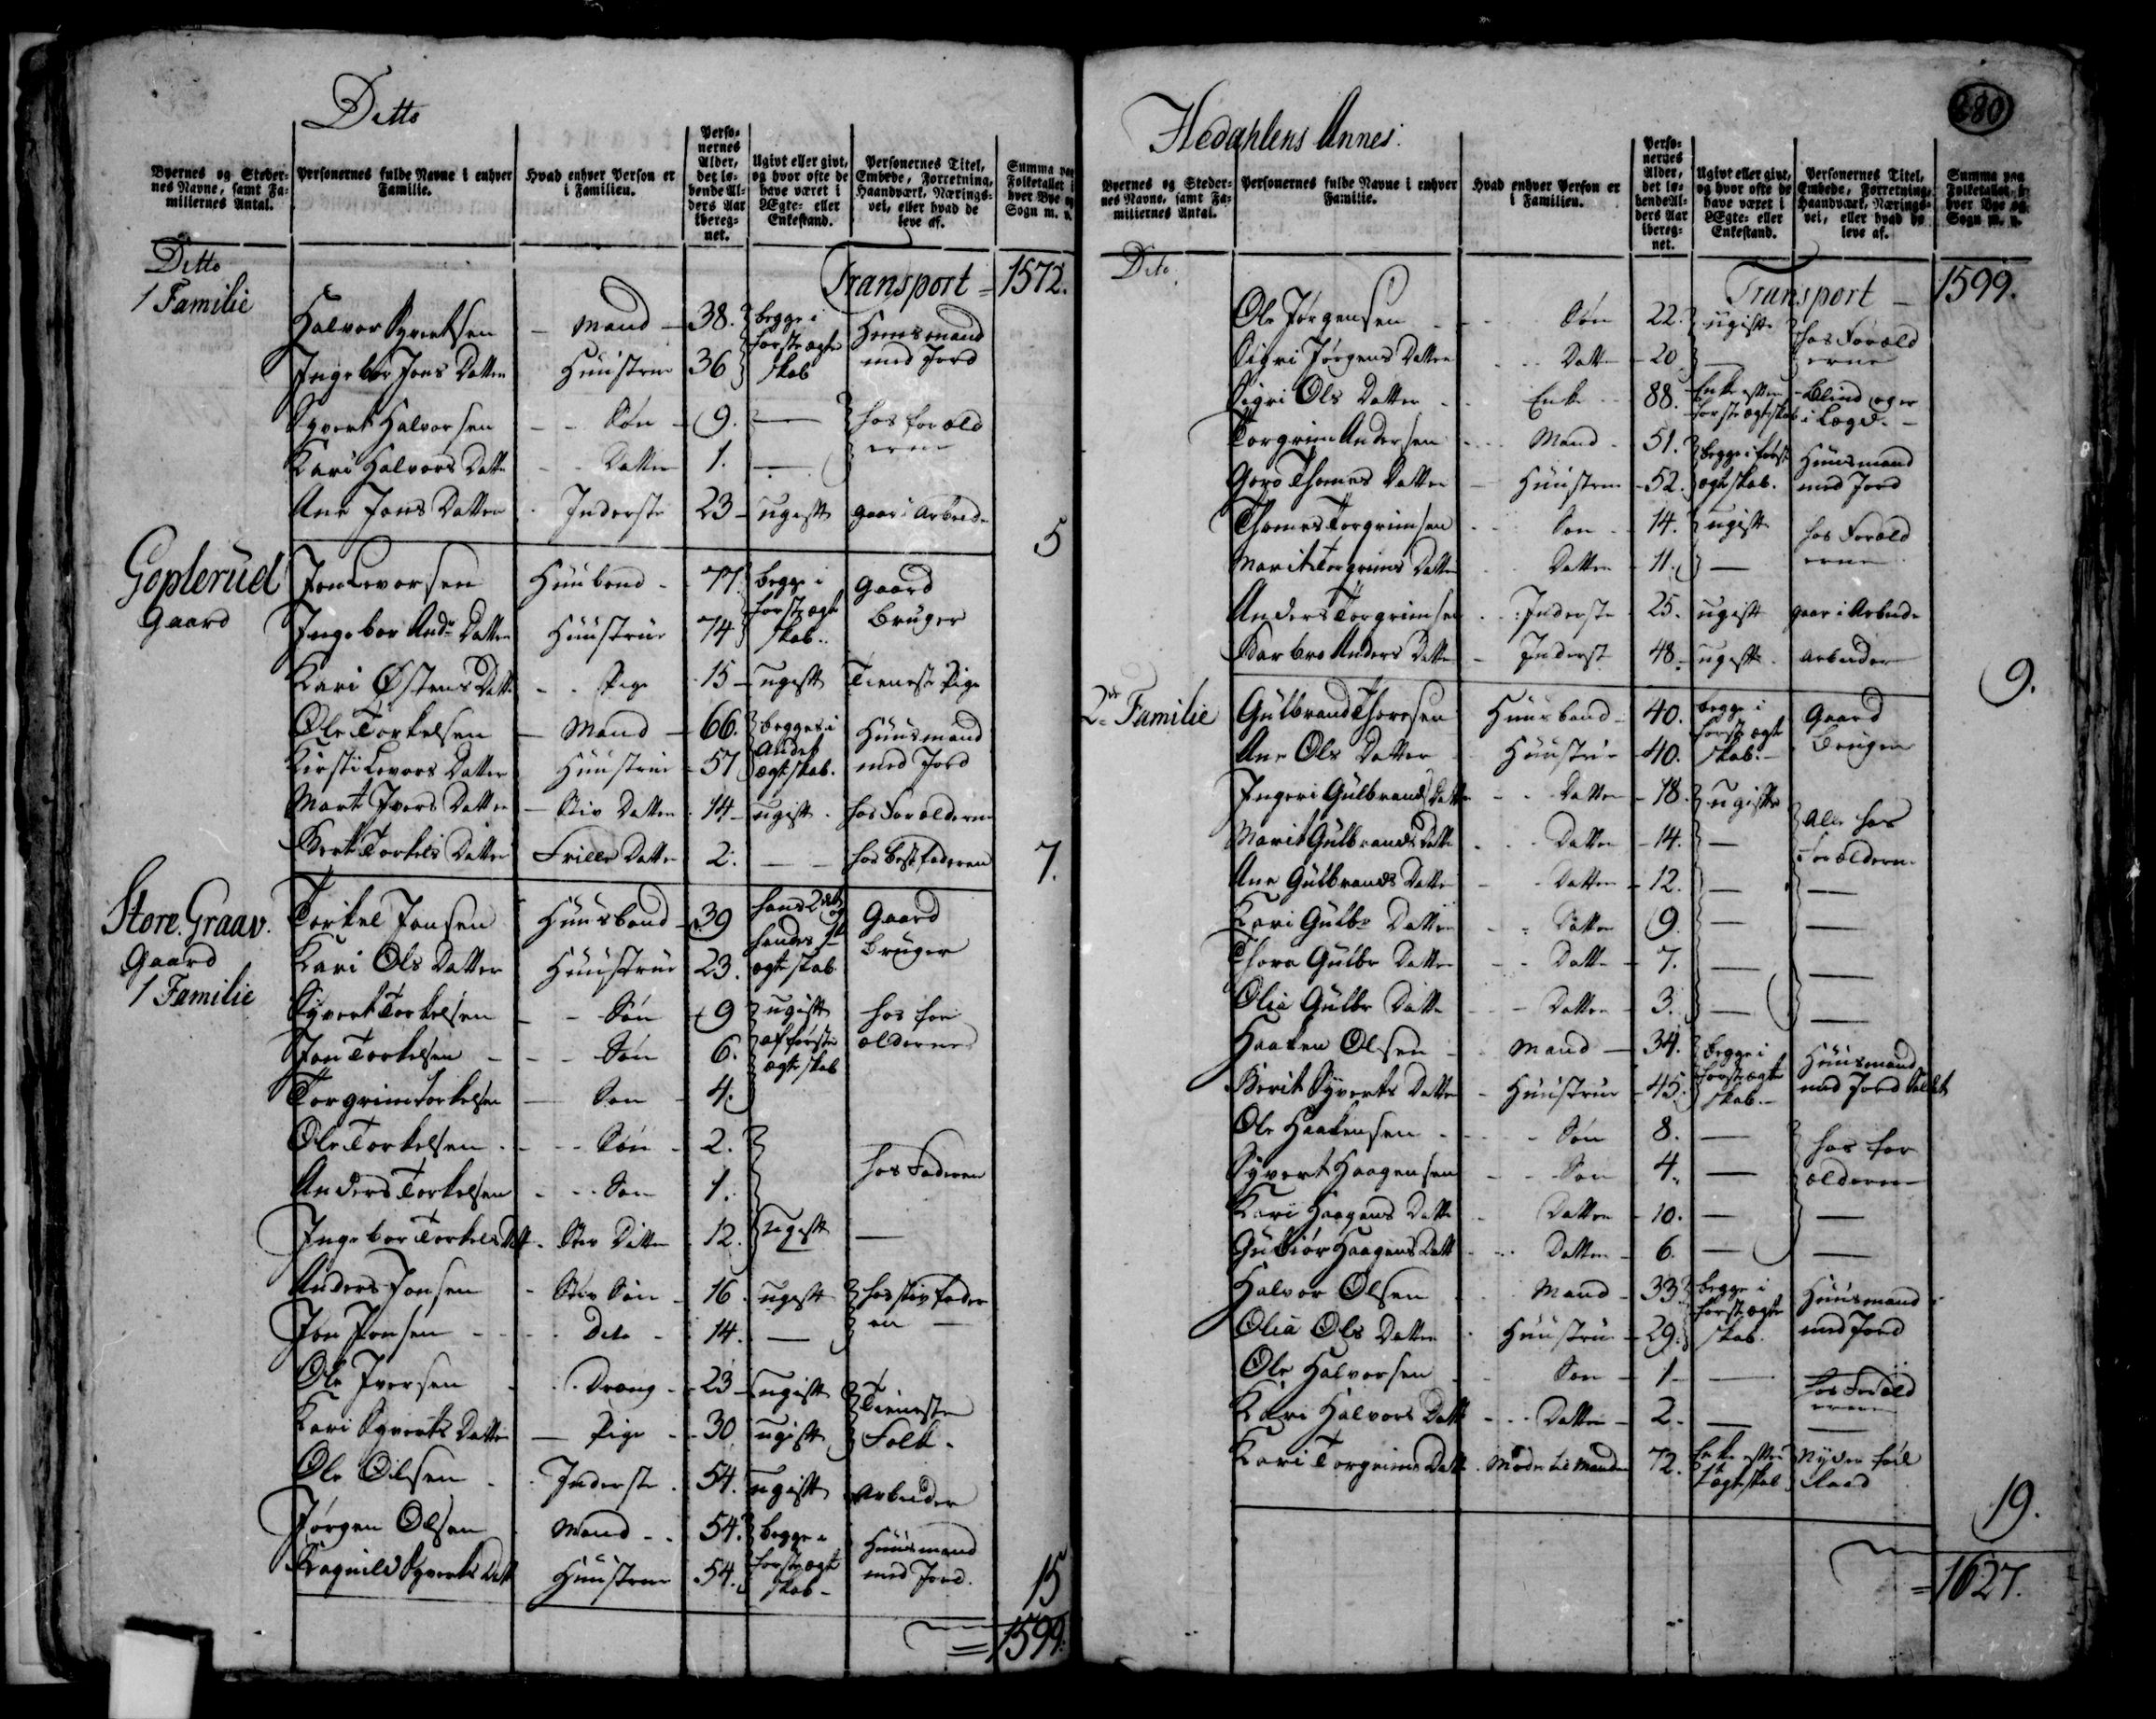 Ditto
Byernes og Steder-
nes Navne, samt Fa-
miliernes Antal.
Personernes fulde Navne i enhver
Familie.
Hvad enhver Person er
i Familien.
Perso-
nernes
Alder,
det lø-
bende Al-
ders Aar
ibereg-
net.
Ugivt eller givt,
og hvor ofte de
have været i
Ægte- eller
Enkestand.
Personernes Titel,
Embede, Forretning,
Haandværk, Nærings-
vei, eller hvad de
leve af.
Summa paa
Folketallet i
hver Bye og
Sogn m. v.
Ditto Transport = 1572.
1 Familie
Halvor Syvertsen – Mand – 38. begge i første ægte skab Huusmand med Jord
Ingebor Jons Datter Huustrue 36
Syvert Halvorsen – Søn – 9. — hos foræld erne
Kari Halvors Datter – Datter 1. —
Ane Jons Datter Inderste 23 – ugift gaar i Arbeide
5
Goplerud Gaard
Jon Levorsen Huusbond – 77. begge i første ægte skab. Gaard Bruger
Ingebor And: Datter Huustrue 74
Kari Østens Datter – Pige 15 – ugift Tieneste Pige
Ole Torkelsen – Mand – 66. begge i Andet ægteskab. Huusmand med Jord
Kirsti Levors Datter Huustrue 57
Marte Ivers Datter – Stiv Datter 14 – ugift hos Forælderne
Berte Torkels Datter Frille Datter 2. — hos Bestefaderen
7.
Store Graav. Gaard
1 Familie
Torkel Jonsen Huusbond – 39 hans 2det og hendes 1ste ægteskab Gaard Bruger
Kari Ols Datter Huustrue 23.
Syvert Torkelsen – Søn 9 ugift af første ægteskab hos for ælderne
Jon Torkelsen – Søn 6.
Torgrim Torkelsen — Søn – 4.
Ole Torkelsen – Søn – 2. hos Faderen
Anders Torkelsen – Søn 1.
Ingebor Torkels Datt – Stiv Datter 12. ugift —
Anders Jonsen – Stiv Søn – 16. ugift hos stiv fader en —
Jon Jonsen – Dito – 14. —
Ole Iversen Dreng – 23 – ugift Tieneste Folk.
Kari Syverts Datter — Pige – 30 ugift
Ole Olsen Inderste 54. ugift Arbeider
Jørgen Olsen Mand – 54. begge i første ægte skab – Huusmand med Jord.
Ragnild Syverts Datt Huustrue 54.
15
= 1599.
Hedahlens Annex:
280
Byernes og Steder-
nes Navne, samt Fa-
miliernes Antal.
Personernes fulde Navne i enhver
Familie.
Hvad enhver Person er
i Familien.
Perso-
nernes
Alder,
det lø-
bende Al-
ders Aar
ibereg-
net.
Ugivt eller givt,
og hvor ofte de
have været i
Ægte- eller
Enkestand.
Personernes Titel,
Embede, Forretning,
Haandværk, Nærings-
vei, eller hvad de
leve af.
Summa paa
Folketallet i
hver Bye og
Sogn m. v.
Dito Transport – 1599.
Ole Jørgensen Søn 22. ugift hos Foræld erne
Sigri Jørgens Datter Datter – 20 —
Sigri Ols Datter – Enke – 88. Enke efter første ægteskab – Blind og er i Lægd. –
Torgrim Andersen Mand – 51. begge i første ægteskab. Huusmand med Jord
Goro Thomes Datter – Huustrue – 52.
Thomes Torgrimsen Søn – 14. ugift hos Foræld erne
Marit Torgrims Datter Datter – 11. —
Anders Torgrimsen Inderste – 25. ugift gaar i Arbeide
Barbro Anders Datter – Inderst 48. – ugift. Arbeider
9.
2de Familie
Gulbrand Thoresen Huusbond – 40. begge i første ægte skab. – Gaard Bruger
Ane Ols Datter Huustrue – 40.
Ingeri Gulbrands Datter – Datter – 18. ugift Alle hos Forælderne
Marit Gulbrands Datter – Datter – 14. —
Ane Gulbrands Datter – Datter – 12. — —
Kari Gulb: Datter – Datter 9. — —
Thora Gulbr Datter – Datter – 7. — —
Olia Gulbr Datter – Datter – 3. — —
Haaken Olsen – Mand — 34. begge i første ægte skab. – Huusmand med Jord
Berit Syverts Datter – Huustrue – 45.
Ole Haakensen – Søn 8. — hos for ælderne
Syvert Haagensen – Søn 4. —
Kari Haagens Datter Datter – 10. — —
Guliør Haagens Datt Datter – 6. — —
Halvor Olsen Mand – 33. begge i første ægte skab. Huusmand med Jord
Olia Ols Datter Huustrue – 29.
Ole Halvorsen Søn – 1 – — hos Foræld erne
Kari Halvors Datt – Datter – 2. — —
Kari Torgrims Datt. Moder til Manden 72. Enke efter 1ste ægteskab Nyder føde Raad
19.
= 1627.